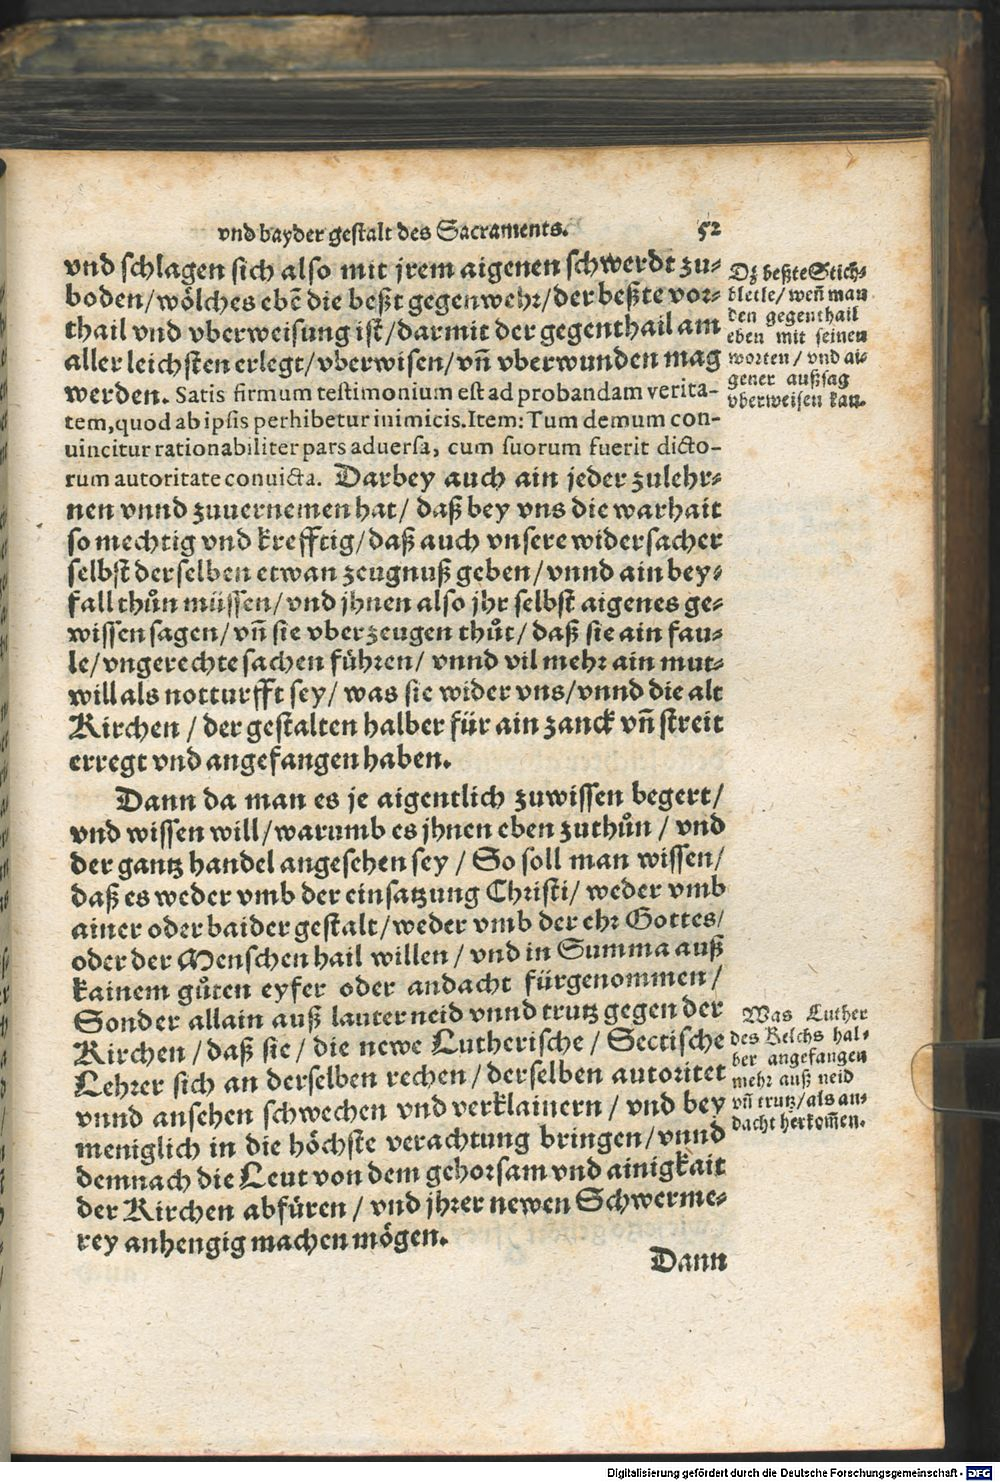 vnd bayder gestalt des Sacraments. 52
vnd schlagen sich also mit jrem aigenen schwerdt zu-
boden/wölches ebẽ die beßt gegenwehr/der beßte vor-
thail vnd vberweisung ist/darmit der gegenthail am
aller leichsten erlegt/vberwisen/vñ vberwunden mag
werden. Satis firmum testimonium est ad probandam verita-
tem,quod ab ipsis perhibetur inimicis.Item: Tum demum con-
uincitur rationabiliter pars aduersa, cum suorum fuerit dicto-
rum autoritate conuicta. Darbey auch ain jeder zulehr-
nen vnnd zuuernemen hat/ daß bey vns die warhait
so mechtig vnd krefftig/daß auch vnsere widersacher
selbst derselben etwan zeugnuß geben/vnnd ain bey-
fall thůn müssen/vnd jhnen also jhr selbst aigenes ge-
wissen sagen/vñ sie vberzeugen thůt/ daß sie ain fau-
le/vngerechte sachen führen/ vnnd vil mehr ain mut-
will als notturfft sey/ was sie wider vns/vnnd die alt
Kirchen / der gestalten halber für ain zanck vñ streit
erregt vnd angefangen haben.
Dann da man es je aigentlich zuwissen begert/
vnd wissen will/warumb es jhnen eben zuthůn / vnd
der gantz handel angesehen sey / So soll man wissen/
daß es weder vmb der einsatzung Christi/ weder vmb
ainer oder baider gestalt/weder vmb der ehr Gottes/
oder der Menschen hail willen / vnd in Summa auß
kainem gůten eyfer oder andacht fürgenommen/
Sonder allain auß lauter neid vnnd trutz gegen der
Kirchen / daß sie / die newe Lutherische / Sectische
Lehrer sich an derselben rechen / derselben autoritet
vnnd ansehen schwechen vnd verklainern / vnd bey
meniglich in die höchste verachtung bringen/vnnd
demnach die Leut von dem gehorsam vnd ainigkait
der Kirchen abfüren / vnd jhrer newen Schwerme-
rey anhengig machen mögen.
Dann
Dz beßte Stich-
bletle/ weñ man
den gegenthail
eben mit seinen
worten / vnd ai-
gener außsag
vberweisen kan.
Was Luther
des Kelchs hal-
ber angefangen
mehr auß neid
vñ trutz/als an-
dacht herkom̃en.
Digitalisierung gefördert durch die Deutsche Forschungsgemeinschaft - DFG